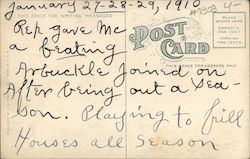 January 27-28-29, 1910
THIS SPACE FOR WRITING MESSAGES
POST CARD
PLACE STAMP HERE
DOMESTIC ONE CENT
FOREIGN TWO CENTS
THIS SPACE FOR ADDRESS ONLY
Rep gave me
a beating
Arbuckle Joined on
After being out a Sea-
son. Playing to full
Houses all Season